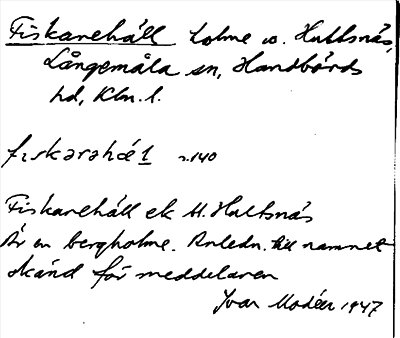 Fiskarehäll holme v. Hultsnäs,
Långemåla sn, Handbörds
hd, Klm. l.
fɪskarahɛ́l s.140
Fiskarehäll ek H. Hultsnäs
Är en bergholme. Anledn. till namnet
okänd för meddelaren
Ivar Modéer 1947